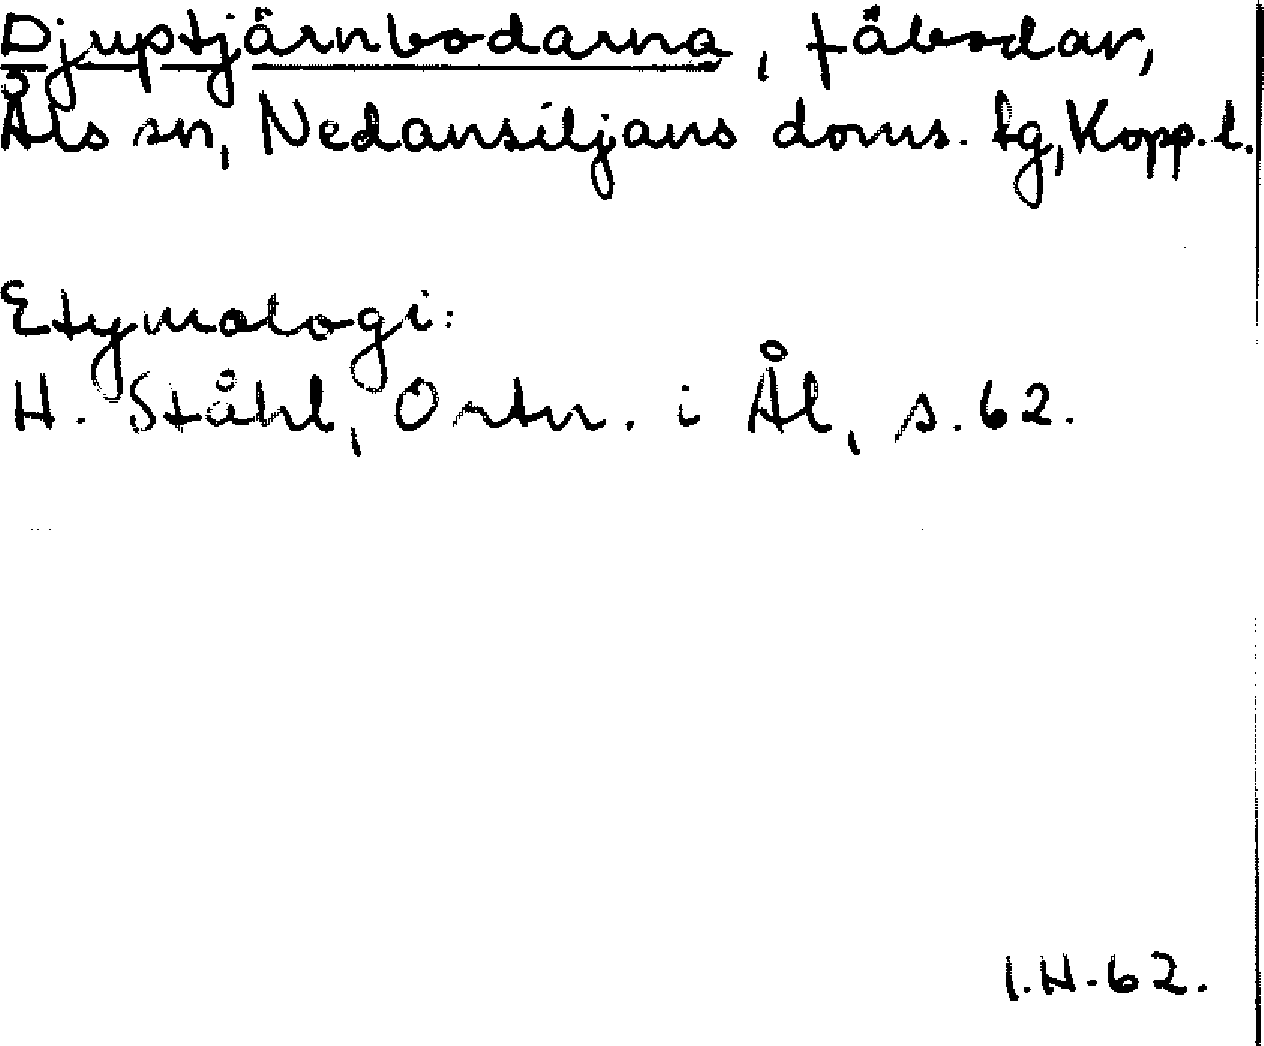 Djuptjärnbodarna, fäbodar,
Åls sn, Nedansiljans doms. tg, Kopp. l.
Etymologi:
H. Ståhl, Ortn. i Ål, s. 62.
I.H.62.